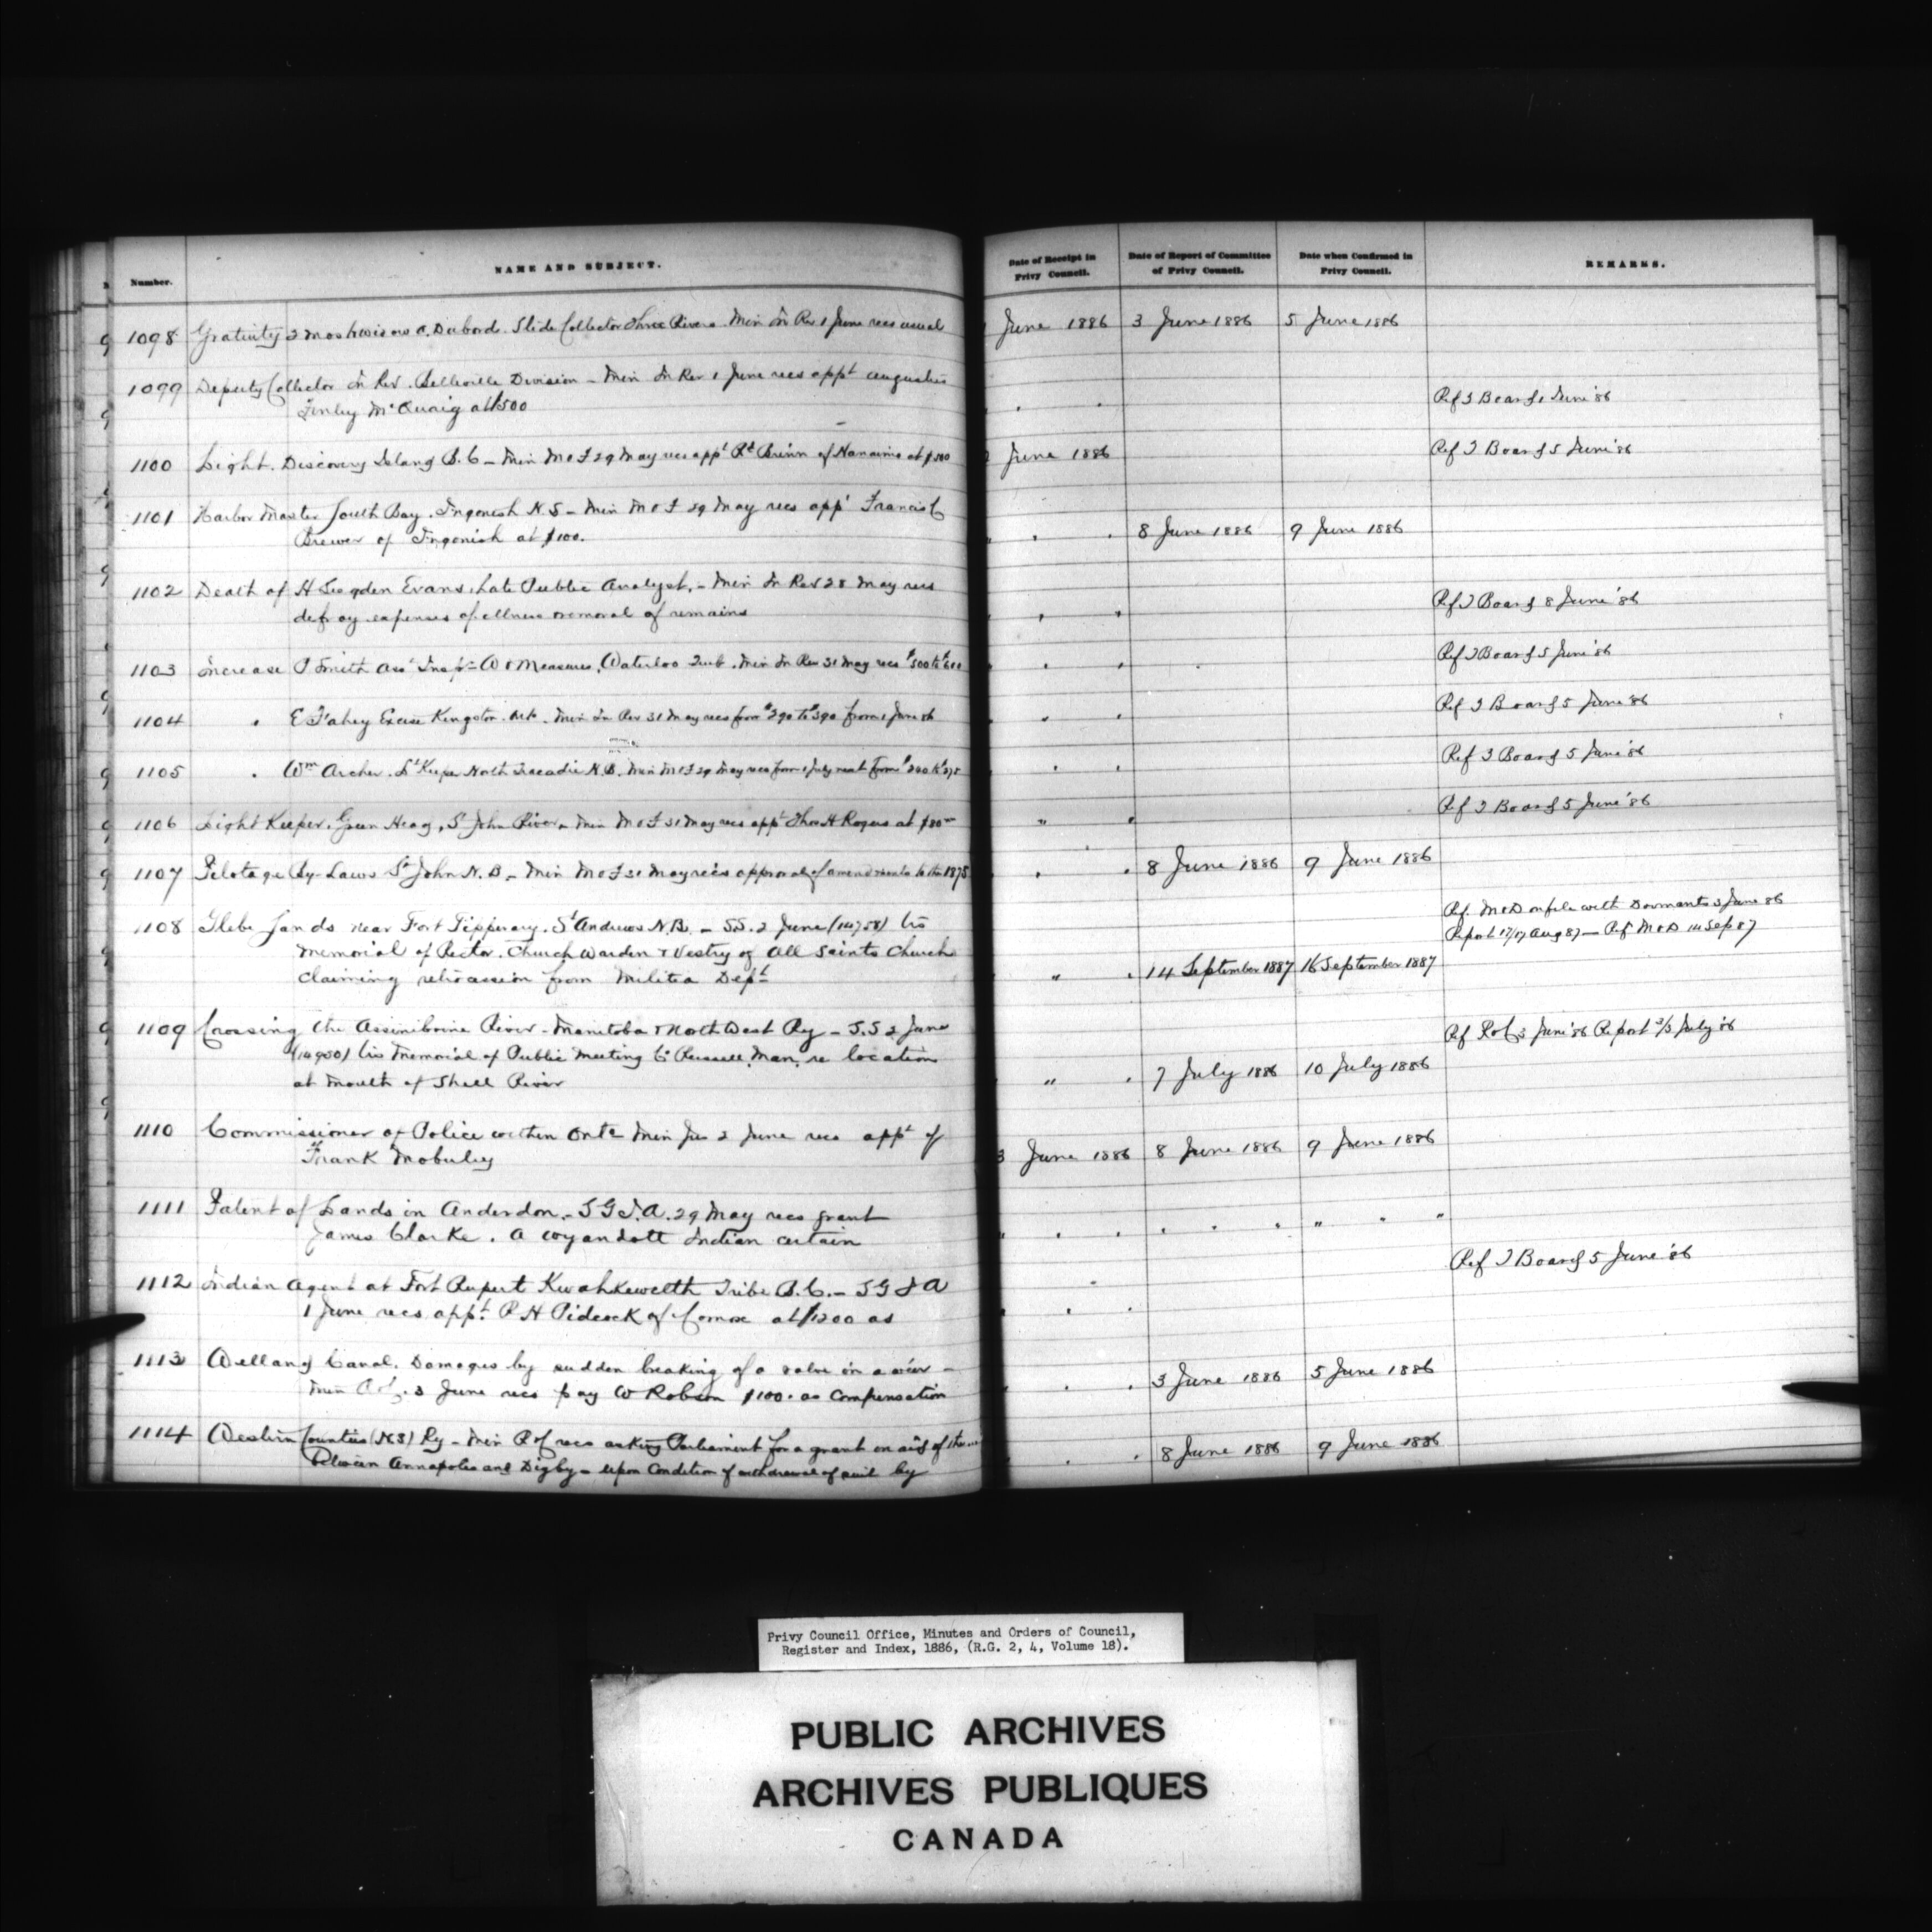 Number.
NAME AND SUBJECT.
Date of Receipt in Privy Council.
Date of Report of Committee of Privy Council.
Date when Confirmed in Privy Council.
REMARKS.
1098 Gratuity 2 mos A. Dubord. Slide Collector Three Rivers. Min In Rev 1 June recs usual
June 1886 3 June 1886 5 June 1886
1099 Deputy Collector In Rev. Belleville Division – Min In Rev 1 June recs appt
Finley McQuaig at $500
Ref T Board 1 June '86
1100 Light. Discovery Island B.C – Min M & F 29 May recs appt Rd Brinn of Nanaimo at $500
June 1886
Ref T Board 5 June '86
1101 Harbor Master South Bay. Ingonish N.S – Min M & F 29 May recs appt Francis C
Brewer of Ingonish at $100.
8 June 1886 9 June 1886
1102 Death of H Sugden Evans, Late Public Analyst. – Min In Rev 28 May recs
defray expenses of illness & removal of remains
Ref T Board 8 June '86
1103 Increase J Smith Asst Inspr W & Measures, Waterloo Min In Rev 31 May recs $500 to $600
Ref T Board 5 June '86
1104 " E Fahey Excise Kingston. Min In Rev 31 May recs from $290 to $390 from 1 June 86
Ref T Board 5 June '86
1105 " Wm Archer. Lt Keeper North Tracadie N.B. Min M & F 29 May recs from 1 July next from $240 to
Ref T Board 5 June '86
1106 Light Keeper. Green Head, St John River – Min M & F 31 May recs appt Thos H Rogers at $80
Ref T Board 5 June '86
1107 Pilotage By-Laws St John N.B – Min M & F 31 May recs approval of amendments to the 1875
8 June 1886 9 June 1886
1108 Glebe Lands near Fort Tipperary. St Andrews N.B. – S.S. 2 June (14758) Trs
Memorial of Rector. Church Warden & Vestry of All Saints Church
claiming retrocession from Militia Dept
14 September 1887 16 September 1887
Ref. M & D on file with Dormants 3 June 86
Report 17/17 Aug 87 – Ref M & D 14 Sep 87
1109 Crossing the Assiniboine River – Manitoba & North West Ry – S.S 2 June
Trs Memorial of Public Meeting Co Russell, Man, re location
at mouth of Shell River
" 7 July 1886 10 July 1886
Ref R & C 3 June '86 Report 2/3 July '86
1110 Commissioner of Police within Onto Min Jus 2 June recs appt of
Frank
3 June 1886 8 June 1886 9 June 1886
1111 Patent of Lands in Anderdon – S G I. A. 29 May recs grant
James Clarke. A Wyandott Indian certain
1112 Indian Agent at Fort Rupert Kwahkewelth Tribe B.C. – S G I A
1 June recs appt. R H Pidcock of Comox at $1200 as
Ref T Board 5 June '86
1113 Welland Canal. Damages by sudden breaking of a valve in a weir –
Min R & C. 3 June recs pay W Robson $100. as compensation
3 June 1886 5 June 1886
1114 Western Counties (N.S) Ry – Min R & C recs asking Parliament for a grant on aid of
Between Annapolis and Digby – upon condition of withdrawal of suit by
8 June 1886 9 June 1886
Privy Council Office, Minutes and Orders of Council,
Register and Index, 1886, (R.G. 2, 4, Volume 18).
PUBLIC ARCHIVES
ARCHIVES PUBLIQUES
CANADA